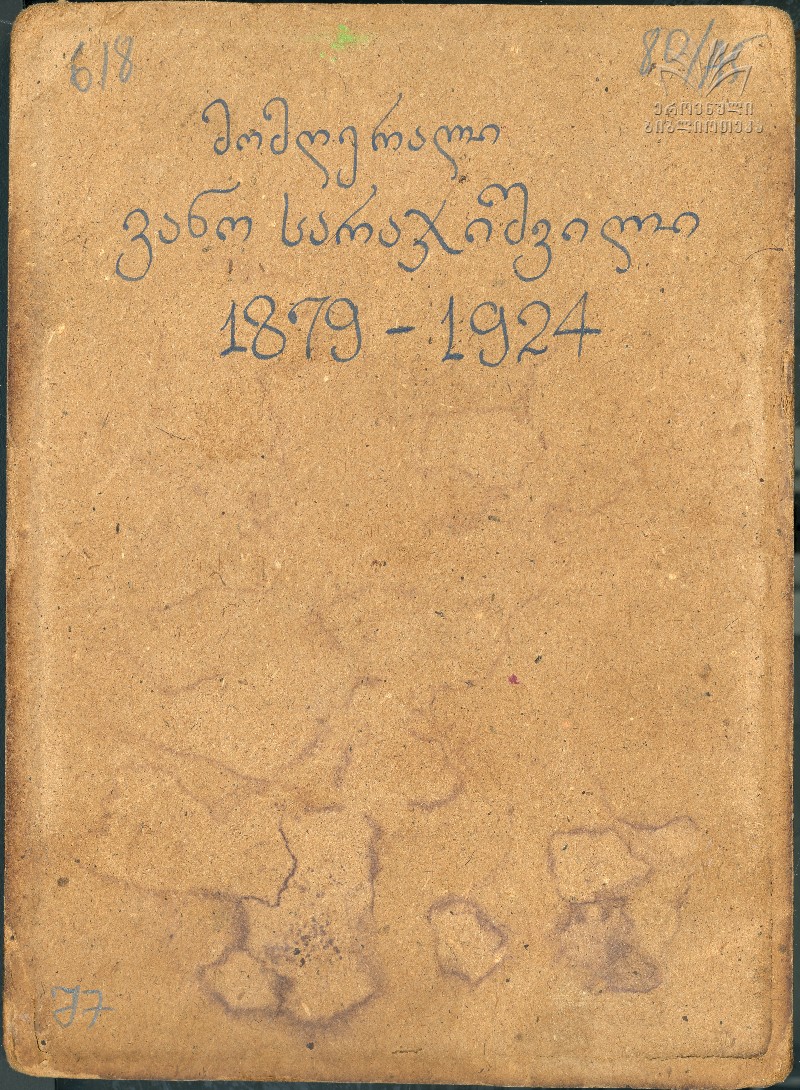 618
ეროვნული
ბიბლიოთეკა
მომღერალი
ვანო სარაჯიშვილი
1879 - 1924